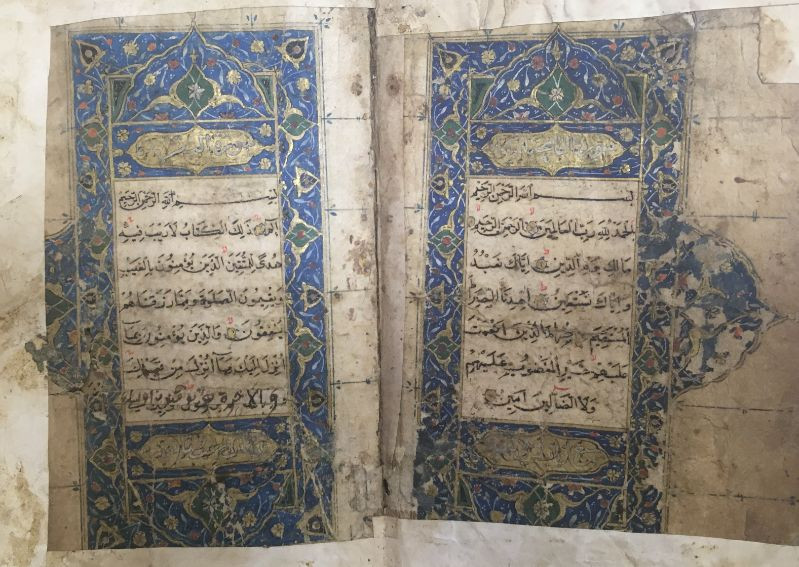 بسم الله الرحمن الرحيم
الحمد لله رب العالمين الرحمن الرحيم
مالك يوم الدين اياك نعبد
واياك نستعين اهدنا الصراط
المستقيم صراط الذين انعمت
عليهم غير المغضوب عليهم
ولا الضالين امين
سورة البقرة
بسم الله الرحمن الرحيم
الم ذلك الكتاب لا ريب فيه
هدى للمتقين الذين يؤمنون بالغيب
ويقيمون الصلوة ومما رزقناهم
ينفقون والذين يؤمنون بما
انزل اليك وما انزل من قبلك
وبالاخرة هم يوقنون اولئك